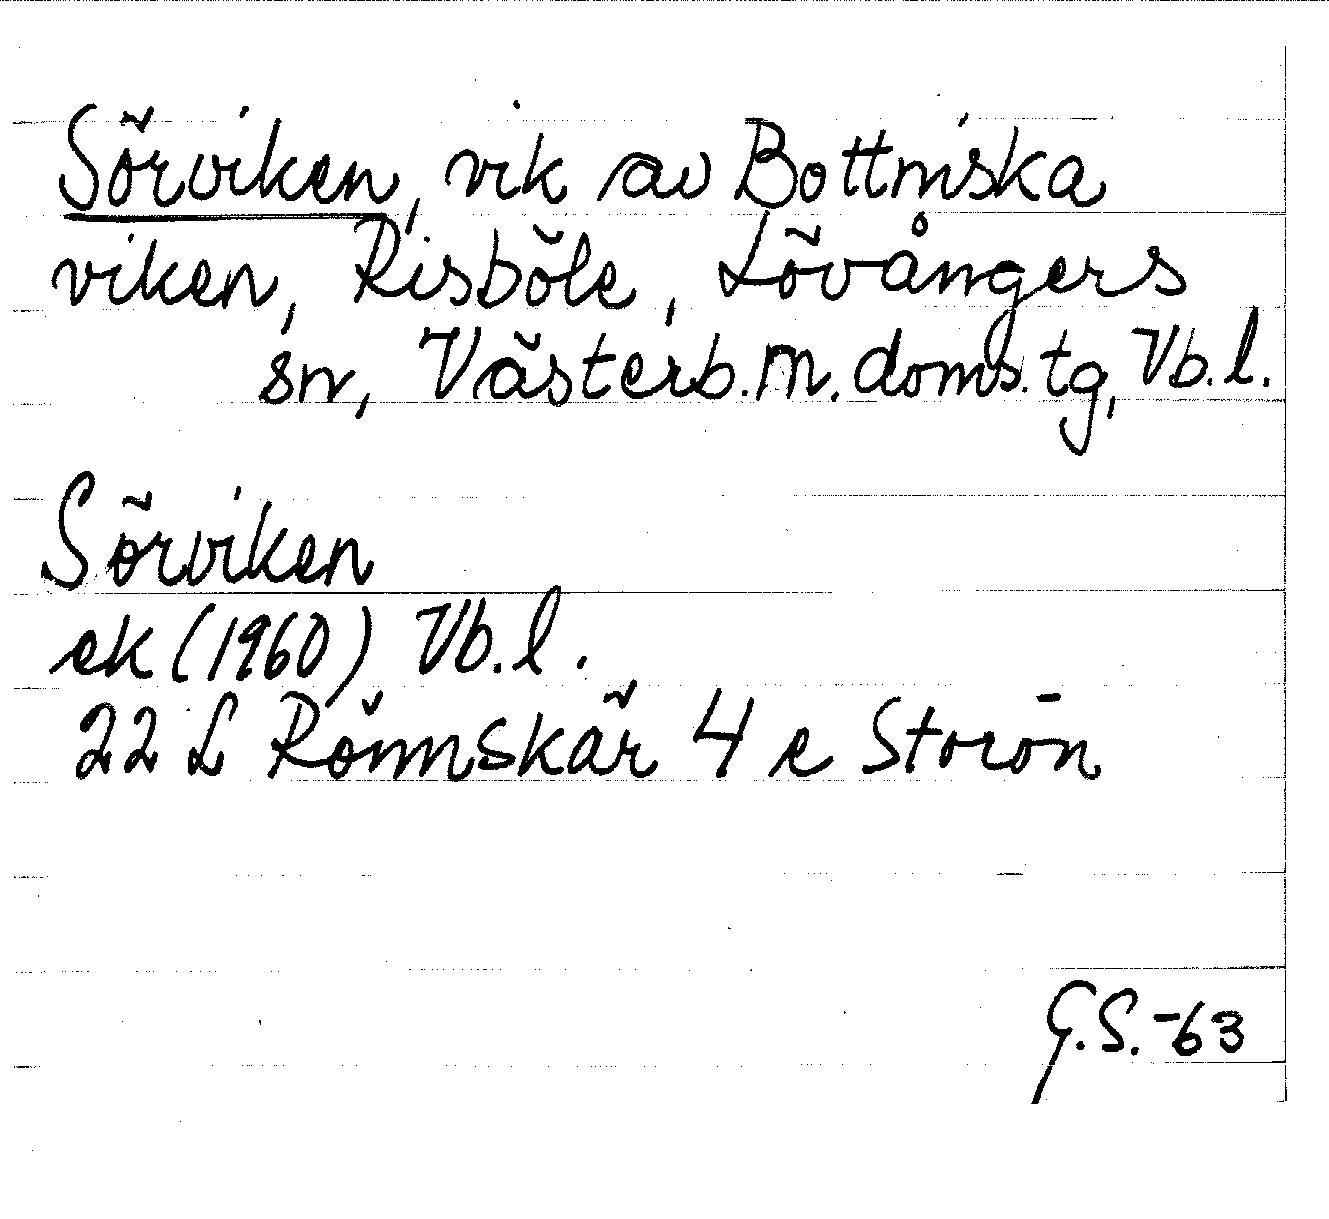 Sörviken, vik av Bottniska
viken, Risböle, Lövångers
sn, Västerb. m. doms. tg, Vb. l.
Sörviken
ek (1960) Vb. l.
22 L Rönnskär 4 e Storön
G.S. -63